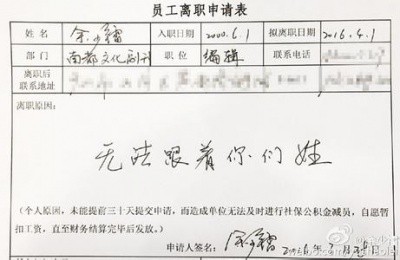 员工离职申请表
姓名 余少镭 入职日期 2000.6.1 拟离职日期 2016.4.1
部门 南都文化副刊 职位 编辑 联系电话
离职后
联系地址
离职原因：
无法跟着你们姓
（个人原因，未能提前三十天提交申请，而造成单位无法及时进行社保公积金减员，自愿暂
扣工资，直至财务结算完毕后发放。）
申请人签名：余少镭 2016年3月28日